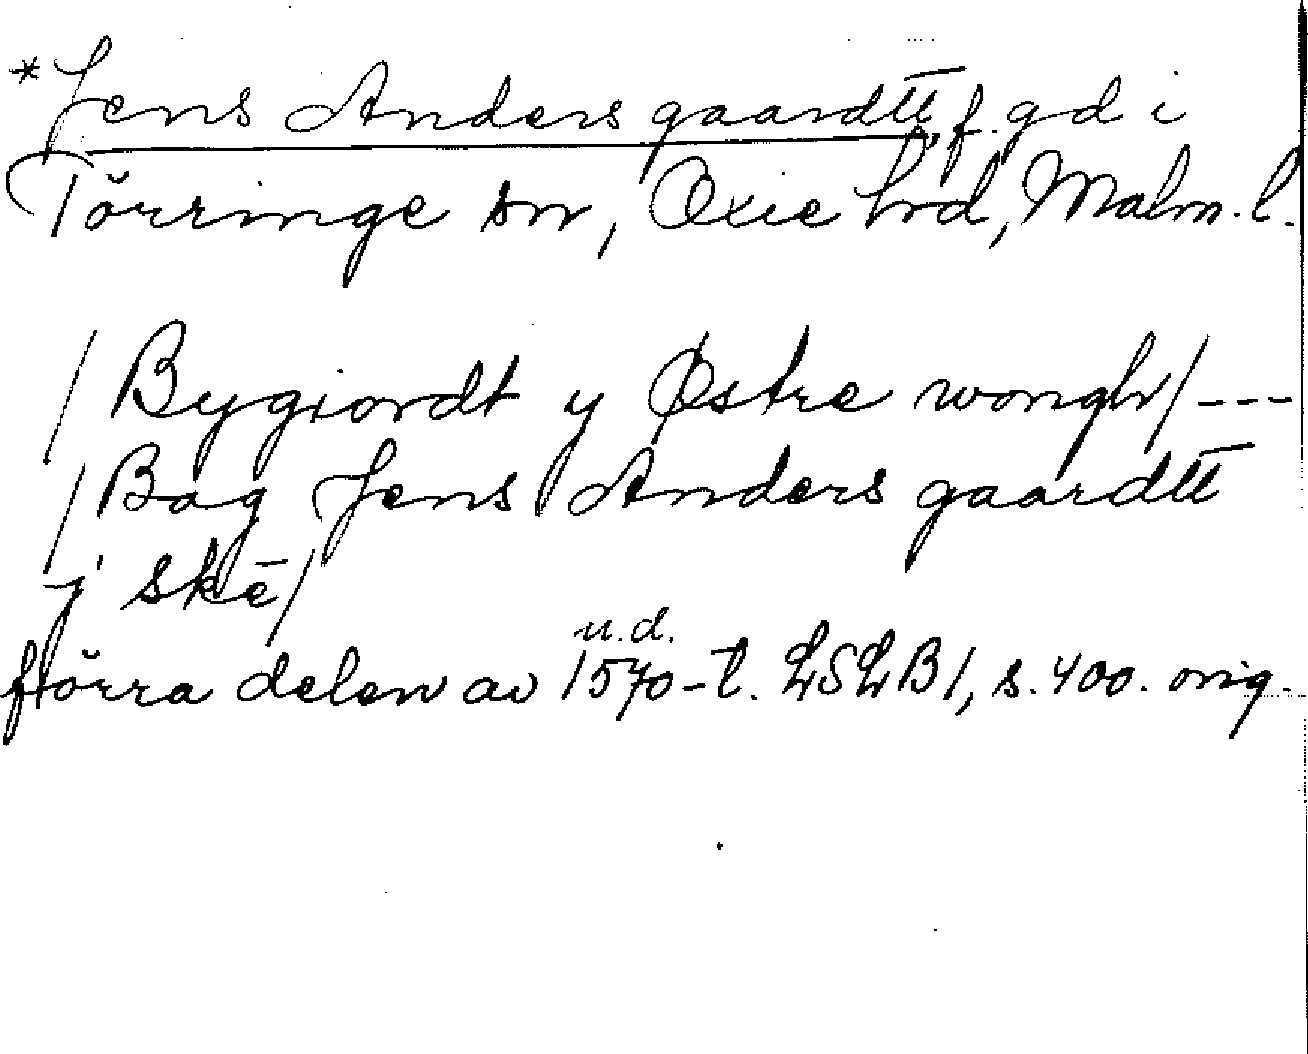 *Jens Anders gaardtt̄, f. gd i
Törringe sn, Oxie hd, Malm. l.
/ Bygiordt y Østre wongh/ ---
/ Bag Jens Anders gaardtt̄
j skē/
u.d.
förra delen av 1570-t. LSLB1, s. 400. orig.